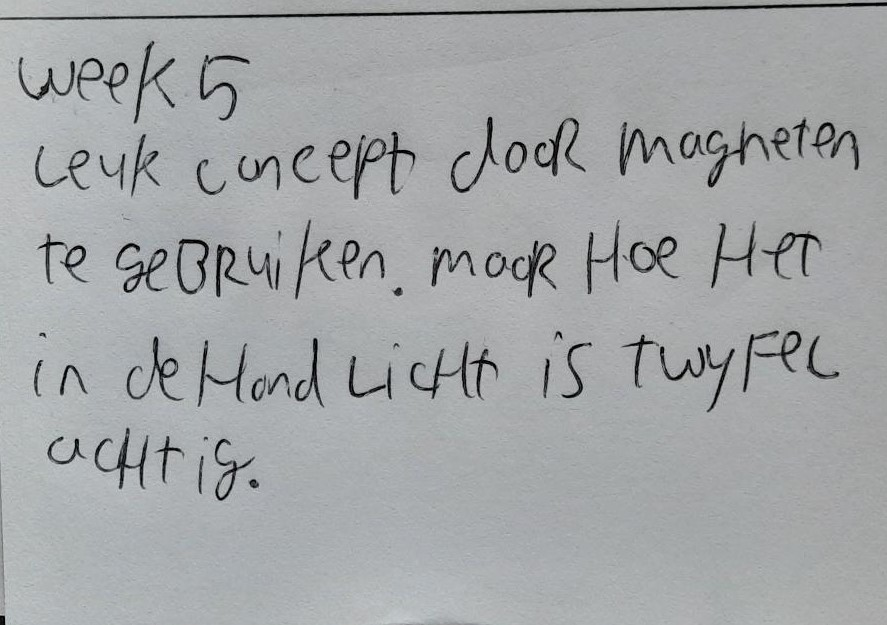 week 5
Leuk concept door magneten
te geBRuiken. maar Hoe Het
in de Hand LicHt is twyFeL
acHtig.